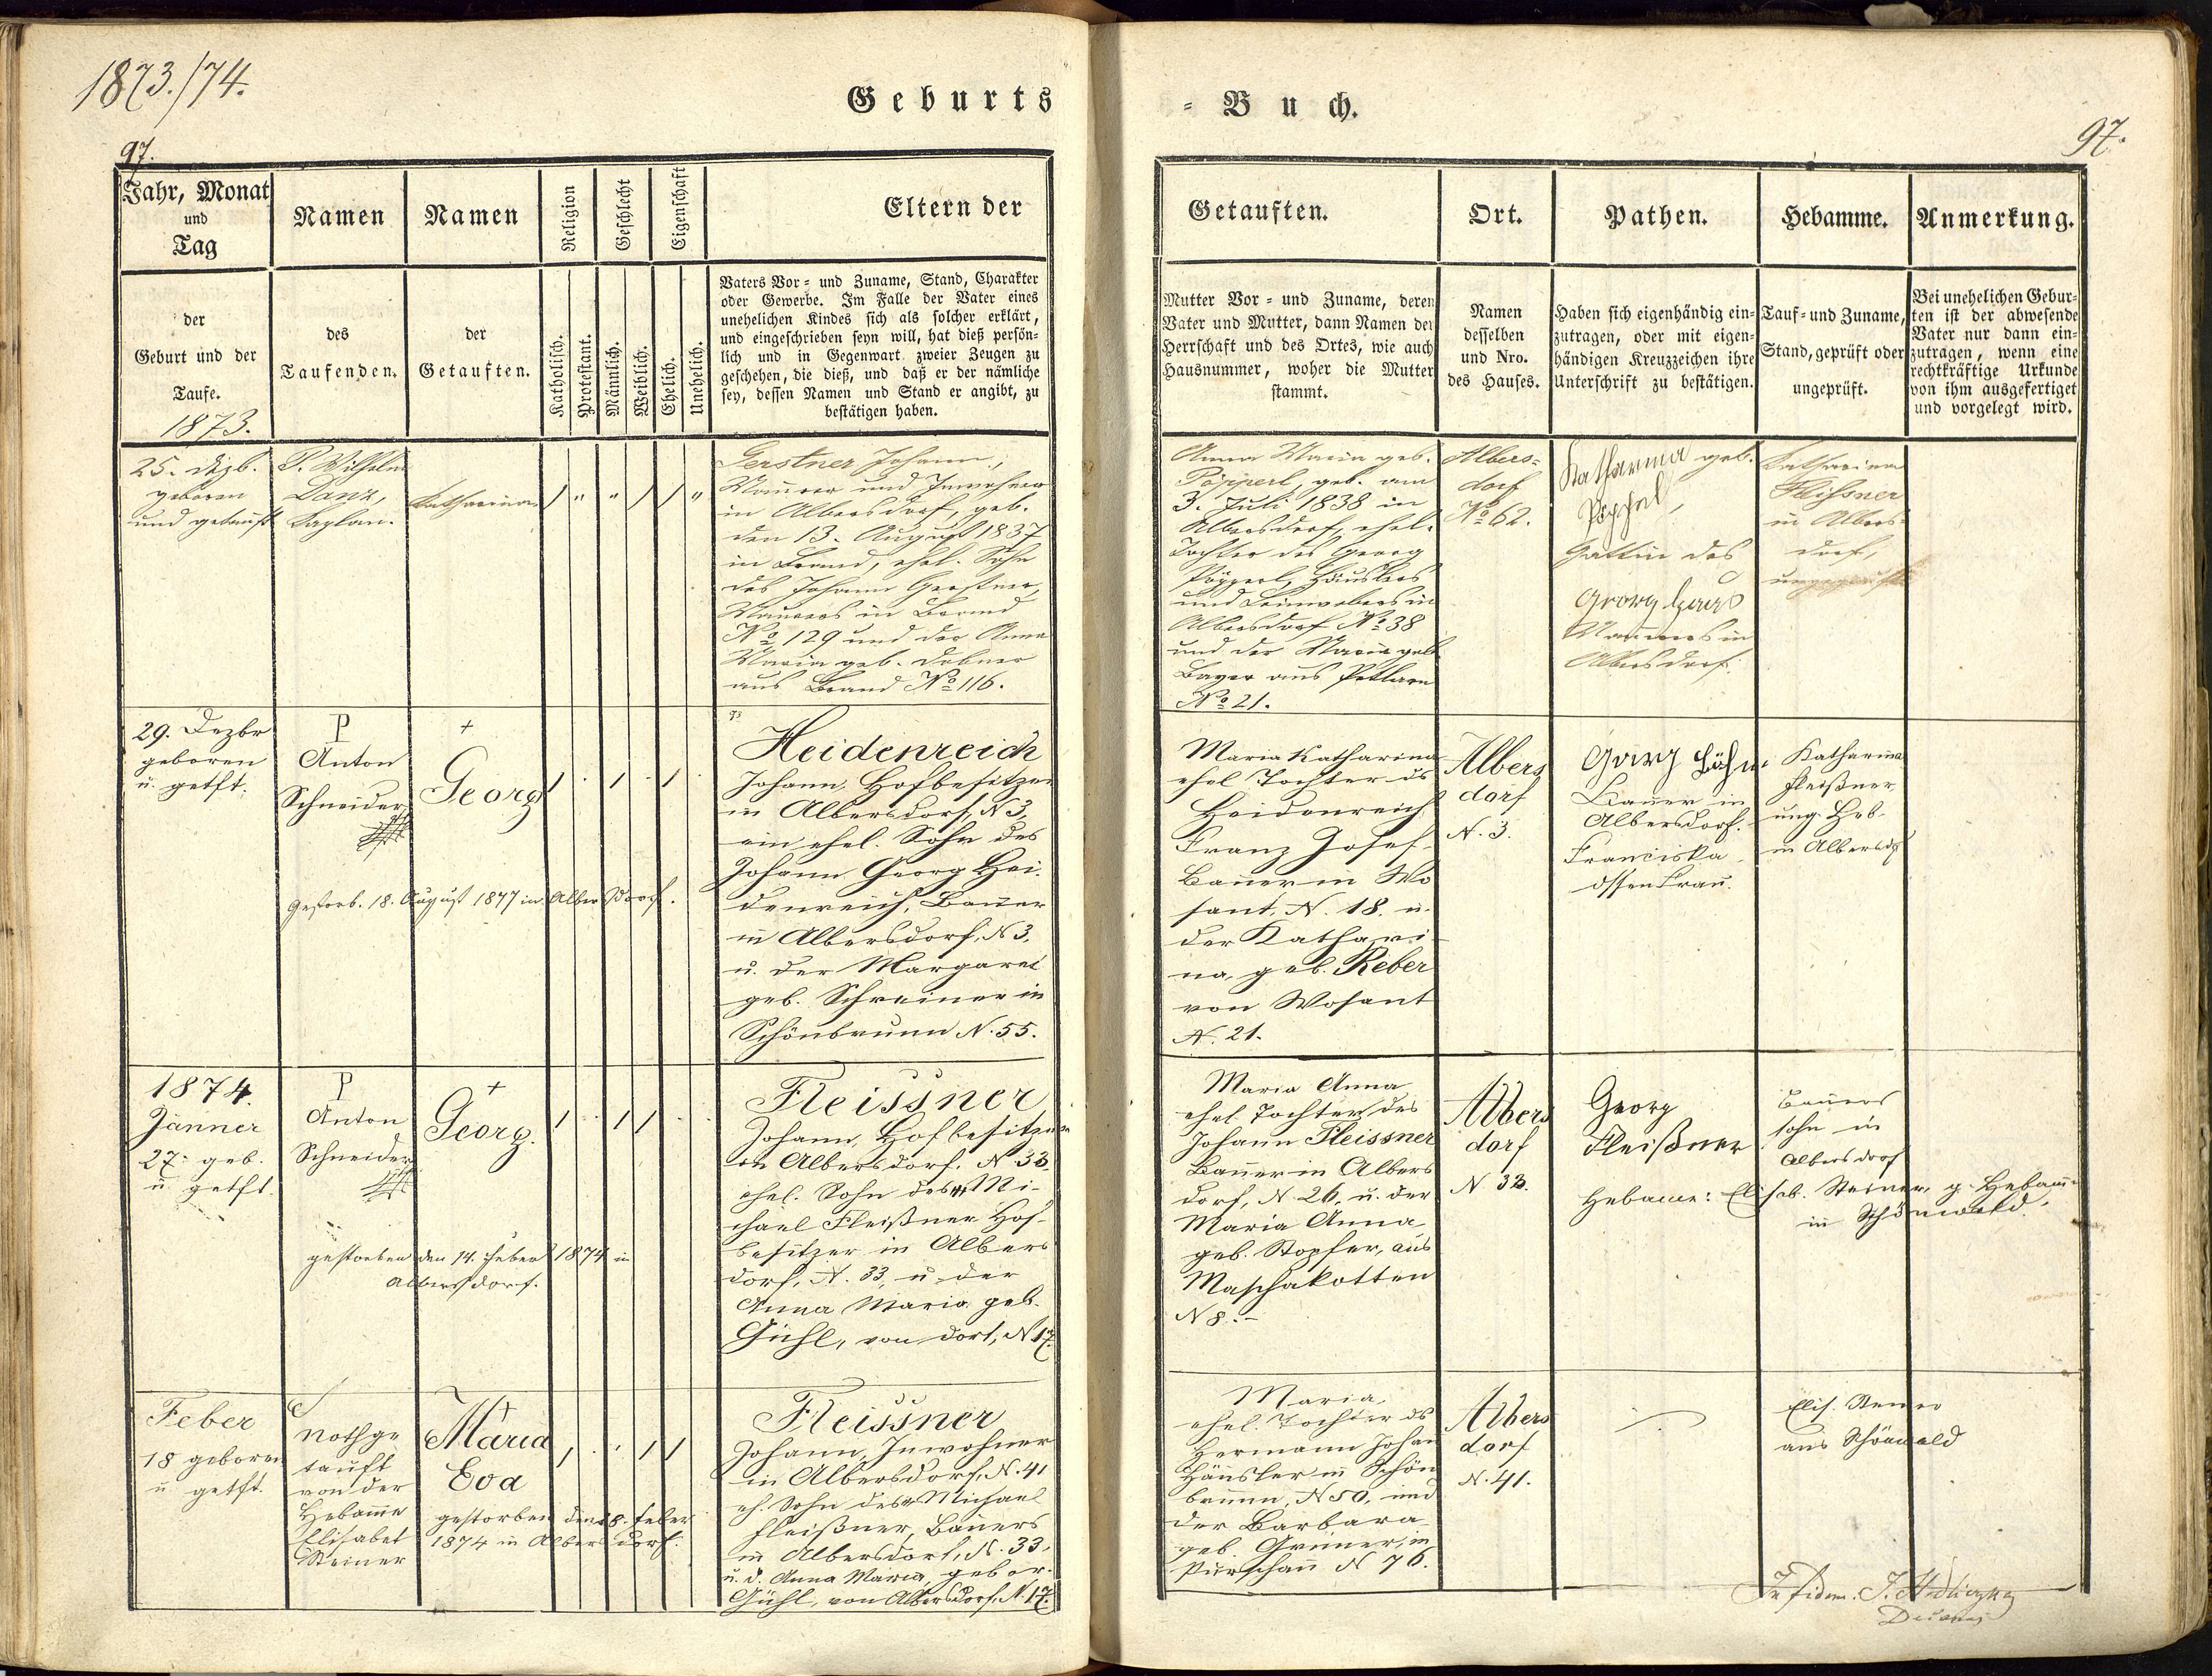 1873./74.
Geburts
97.
Jahr, Monat
und
Tag
Namen
Namen
Religion
Geschlecht
Eigenschaft
Eltern der
der
Geburt und der
Taufe.
1873.
des
Taufenden.
der
Getauften.
Katholisch.
Protestant.
Männlich.
Weiblich.
Ehelich.
Unehelich.
Vaters Vor- und Zuname, Stand, Charakter
oder Gewerbe. Im Falle der Vater eines
unehelichen Kindes sich als solcher erklärt,
und eingeschrieben seyn will, hat dieß persön-
lich und in Gegenwart zweier Zeugen zu
geschehen, die dieß, und daß er der nämliche
sey, dessen Namen und Stand er angibt, zu
bestätigen haben.
25. Dezb.
geboren
und getauft
P. Wilhelm
Danz,
Kaplan.
Katharina
/ " " / / "
Gerstner Johann,
Maurer und Inwohner
in Albersdorf, geb.
den 13. August 1837
in Brand, ehel. Sohn
des Johann Gerstner,
Maurers in Brand
No 129 und der Anna
Maria geb. Dobner
aus Brand No 116.
29. Dezbr
geboren
u. getft.
P
Anton
Schneider
+
Georg
/ . / . / .
gestorb. 18. August 1877 in Albersdorf.
Heidenreich
Johann, Hofbesitzer
in Albersdorf, N 3,
ein ehel. Sohn des
Johann Georg Hei-
denreich, Bauer
in Albersdorf, N 3,
u. der Margaret
geb. Schreiner in
Schönbrunn N. 55.
1874.
Jänner
27. geb.
u getft.
P
Anton
Schneider
+
Georg.
/ . / / .
gestorben den 14. Feber 1874 in
Albersdorf.
Fleissner
Johann, Hofbesitzer
in Albersdorf. N 33.
ehel. Sohn des Mi-
chael Fleißner Hof-
besitzer in Albers
dorf, N. 33, u der
Anna Maria geb.
Gühl, von dort, N 17.
Feber
18 geboren
u getft.
nothge
tauft
von der
Hebamme
Elisabet
Steiner
+
Maria
Eva
/ . . / /
gestorben den 18. Feber
1874 in Albersdorf.
Fleissner
Johann, Inwohner
in Albersdorf, N. 41
eh. Sohn des Michael
Fleißner, Bauers
in Albersdorf, N. 33,
u. d. Anna Maria, gebor.
Gühl, von Albersdorf, N. 17.
= Buch.
97.
Getauften.
Ort.
Pathen.
Hebamme.
Anmerkung.
Mutter Vor- und Zuname, deren
Vater und Mutter, dann Namen der
Herrschaft und des Ortes, wie auch
Hausnummer, woher die Mutter
stammt.
Namen
desselben
und Nro.
des Hauses.
Haben sich eigenhändig ein-
zutragen, oder mit eigen-
händigen Kreuzzeichen ihre
Unterschrift zu bestätigen.
Tauf- und Zuname,
Stand, geprüft oder
ungeprüft.
Bei unehelichen Gebur-
ten ist der abwesende
Vater nur dann ein-
zutragen, wenn eine
rechtkräftige Urkunde
von ihm ausgefertiget
und vorgelegt wird.
Anna Maria geb.
Pöpperl, geb. am
3. Juli 1838 in
Albersdorf, ehel.
Tochter des Georg
Pöpperl, Häuslers
und Leinwebers in
Albersdorf No 38
und der Maria geb.
Bayer aus Petlarn
No 21.
Albers-
dorf
No 62.
Katharina geb.
Gattin des
Georg Haas
Maurers in
Albersdorf.
Katharina
Fleißner
in Albers-
dorf,
ungeprüft
Maria Katharina
ehel Tochter ds
Heidenreich
Franz Josef
Bauer in Wo
sant, N. 18. u.
der Kathari-
na, geb. Reber
von Wosant
N. 21.
Albers
dorf
N. 3.
Georg
Bauer in
Albersdorf.
Franciska
dssen Frau.
Katharina
Fleißner,
ung. Heb.
in Albersdf
Maria Anna
ehel Tochter des
Johann Fleissner
Bauer in Albers
dorf, N. 26, u. der
Maria Anna
geb. Stopfer, aus
Maschakotten
N 8.
Albers
dorf
N 33.
Georg
Fleißner
Bauers
sohn in
Albersdorf
Hebamme: Elisab. Steiner, g. Hebamme
in Schönwald.
Maria,
ehel. Tochter ds
Hermann Johan
Häusler in Schön
brunn, N 50, und
der Barbara
geb. Grüner, in
Purschau N 76.
Albers
dorf
N. 41.
Elis. Steiner
aus Schönwald
In fidem.